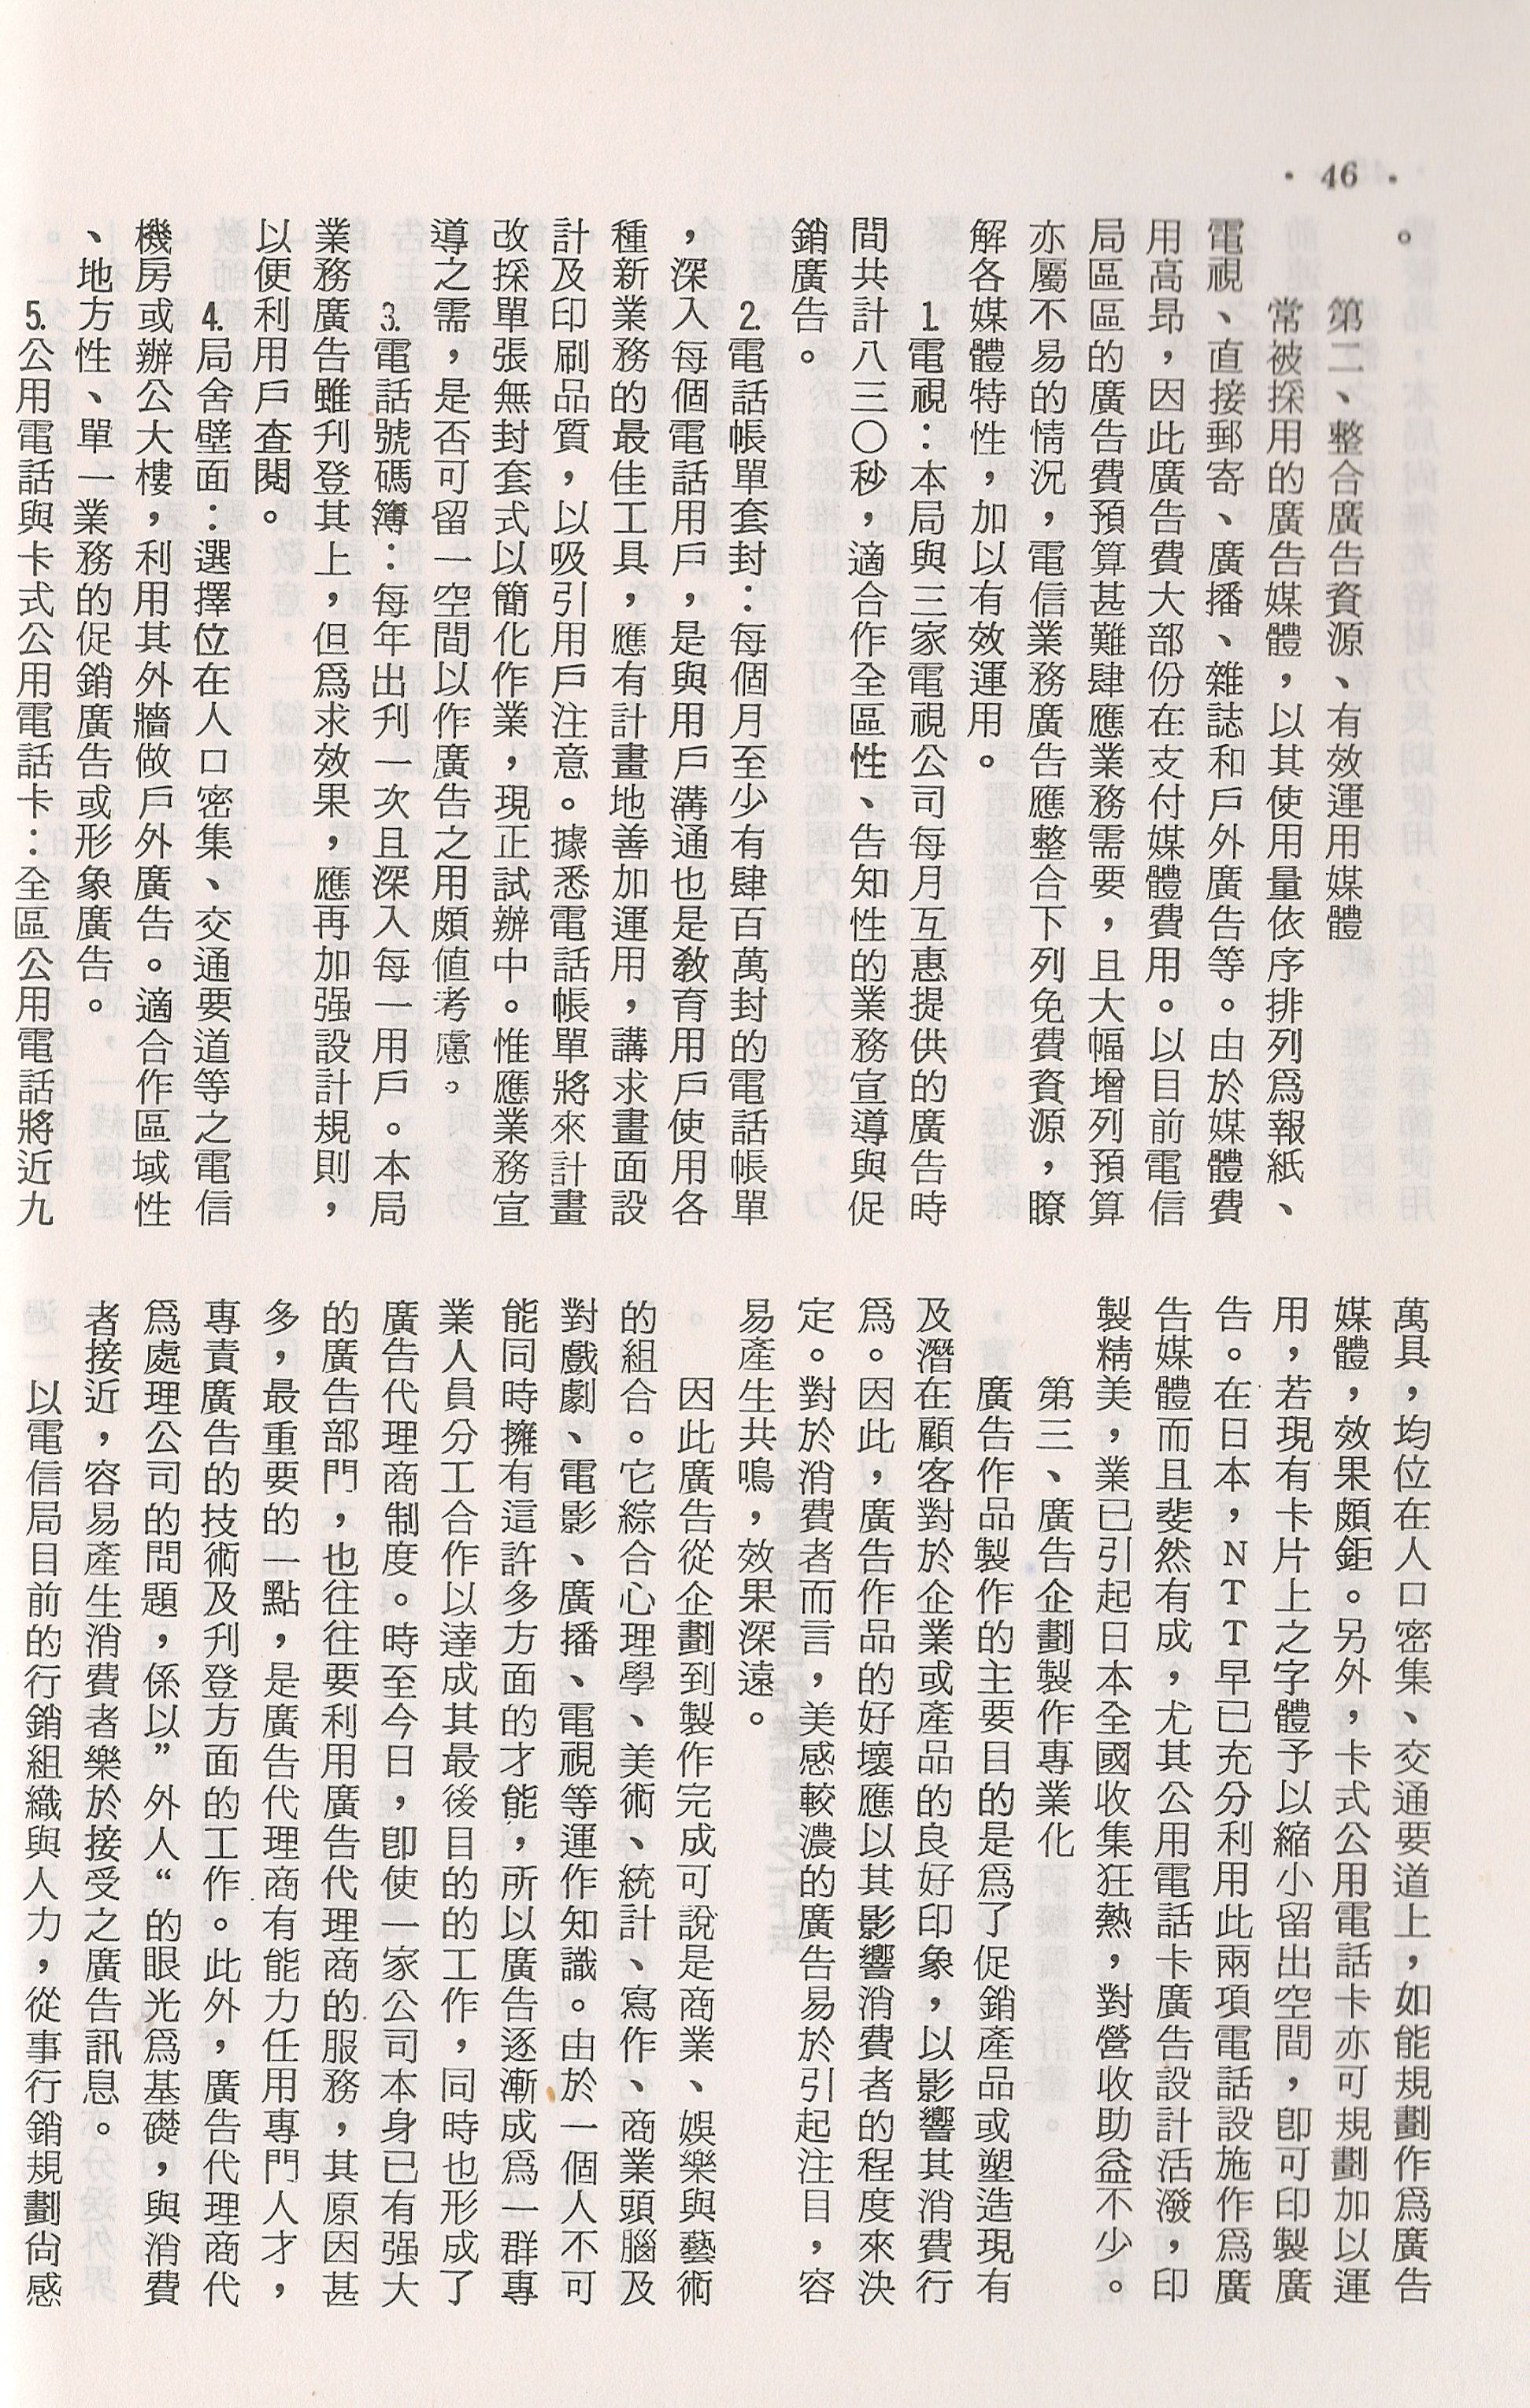 · 46 ·
。
第二、整合廣告資源、有效運用媒體
常被採用的廣告媒體，以其使用量依序排列爲報紙、
電視、直接郵寄、廣播、雜誌和戶外廣告等。由於媒體費
用高昂，因此廣告費大部份在支付媒體費用。以目前電信
局區區的廣告費預算甚難肆應業務需要，且大幅增列預算
亦屬不易的情況，電信業務廣告應整合下列免費資源，瞭
解各媒體特性，加以有效運用。
1.電視：本局與三家電視公司每月互惠提供的廣告時
間共計八三〇秒，適合作全區性、告知性的業務宣導與促
銷廣告。
2.電話帳單套封：每個月至少有肆百萬封的電話帳單
，深入每個電話用戶，是與用戶溝通也是敎育用戶使用各
種新業務的最佳工具，應有計畫地善加運用，講求畫面設
計及印刷品質，以吸引用戶注意。據悉電話帳單將來計畫
改採單張無封套式以簡化作業，現正試辦中。惟應業務宣
導之需，是否可留一空間以作廣告之用頗値考慮。
3.電話號碼簿：每年出刋一次且深入每一用戶。本局
業務廣告雖刋登其上，但爲求效果，應再加强設計規則，
以便利用戶查閱。
4.局舍壁面：選擇位在人口密集、交通要道等之電信
機房或辦公大樓，利用其外牆做戶外廣告。適合作區域性
、地方性、單一業務的促銷廣告或形象廣告。
5.公用電話與卡式公用電話卡：全區公用電話將近九
萬具，均位在人口密集、交通要道上，如能規劃作爲廣告
媒體，效果頗鉅。另外，卡式公用電話卡亦可規劃加以運
用，若現有卡片上之字體予以縮小留出空間，卽可印製廣
告。在日本，NTT早已充分利用此兩項電話設施作爲廣
告媒體而且斐然有成，尤其公用電話卡廣告設計活潑，印
製精美，業已引起日本全國收集狂熱，對營收助益不少。
第三、廣告企劃製作專業化
廣告作品製作的主要目的是爲了促銷產品或塑造現有
及潛在顧客對於企業或產品的良好印象，以影響其消費行
爲。因此，廣告作品的好壞應以其影響消費者的程度來決
定。對於消費者而言，美感較濃的廣告易於引起注目，容
易產生共鳴，效果深遠。
因此廣告從企劃到製作完成可說是商業、娛樂與藝術
的組合。它綜合心理學、美術、統計、寫作、商業頭腦及
對戲劇、電影、廣播、電視等運作知識。由於一個人不可
能同時擁有這許多方面的才能，所以廣告逐漸成爲一群專
業人員分工合作以達成其最後目的的工作，同時也形成了
廣告代理商制度。時至今日，卽使一家公司本身已有强大
的廣告部門，也往往要利用廣告代理商的服務，其原因甚
多，最重要的一點，是廣告代理商有能力任用專門人才，
專責廣告的技術及刋登方面的工作。此外，廣告代理商代
爲處理公司的問題，係以”外人“的眼光爲基礎，與消費
者接近，容易產生消費者樂於接受之廣告訊息。
以電信局目前的行銷組織與人力，從事行銷規劃尙感